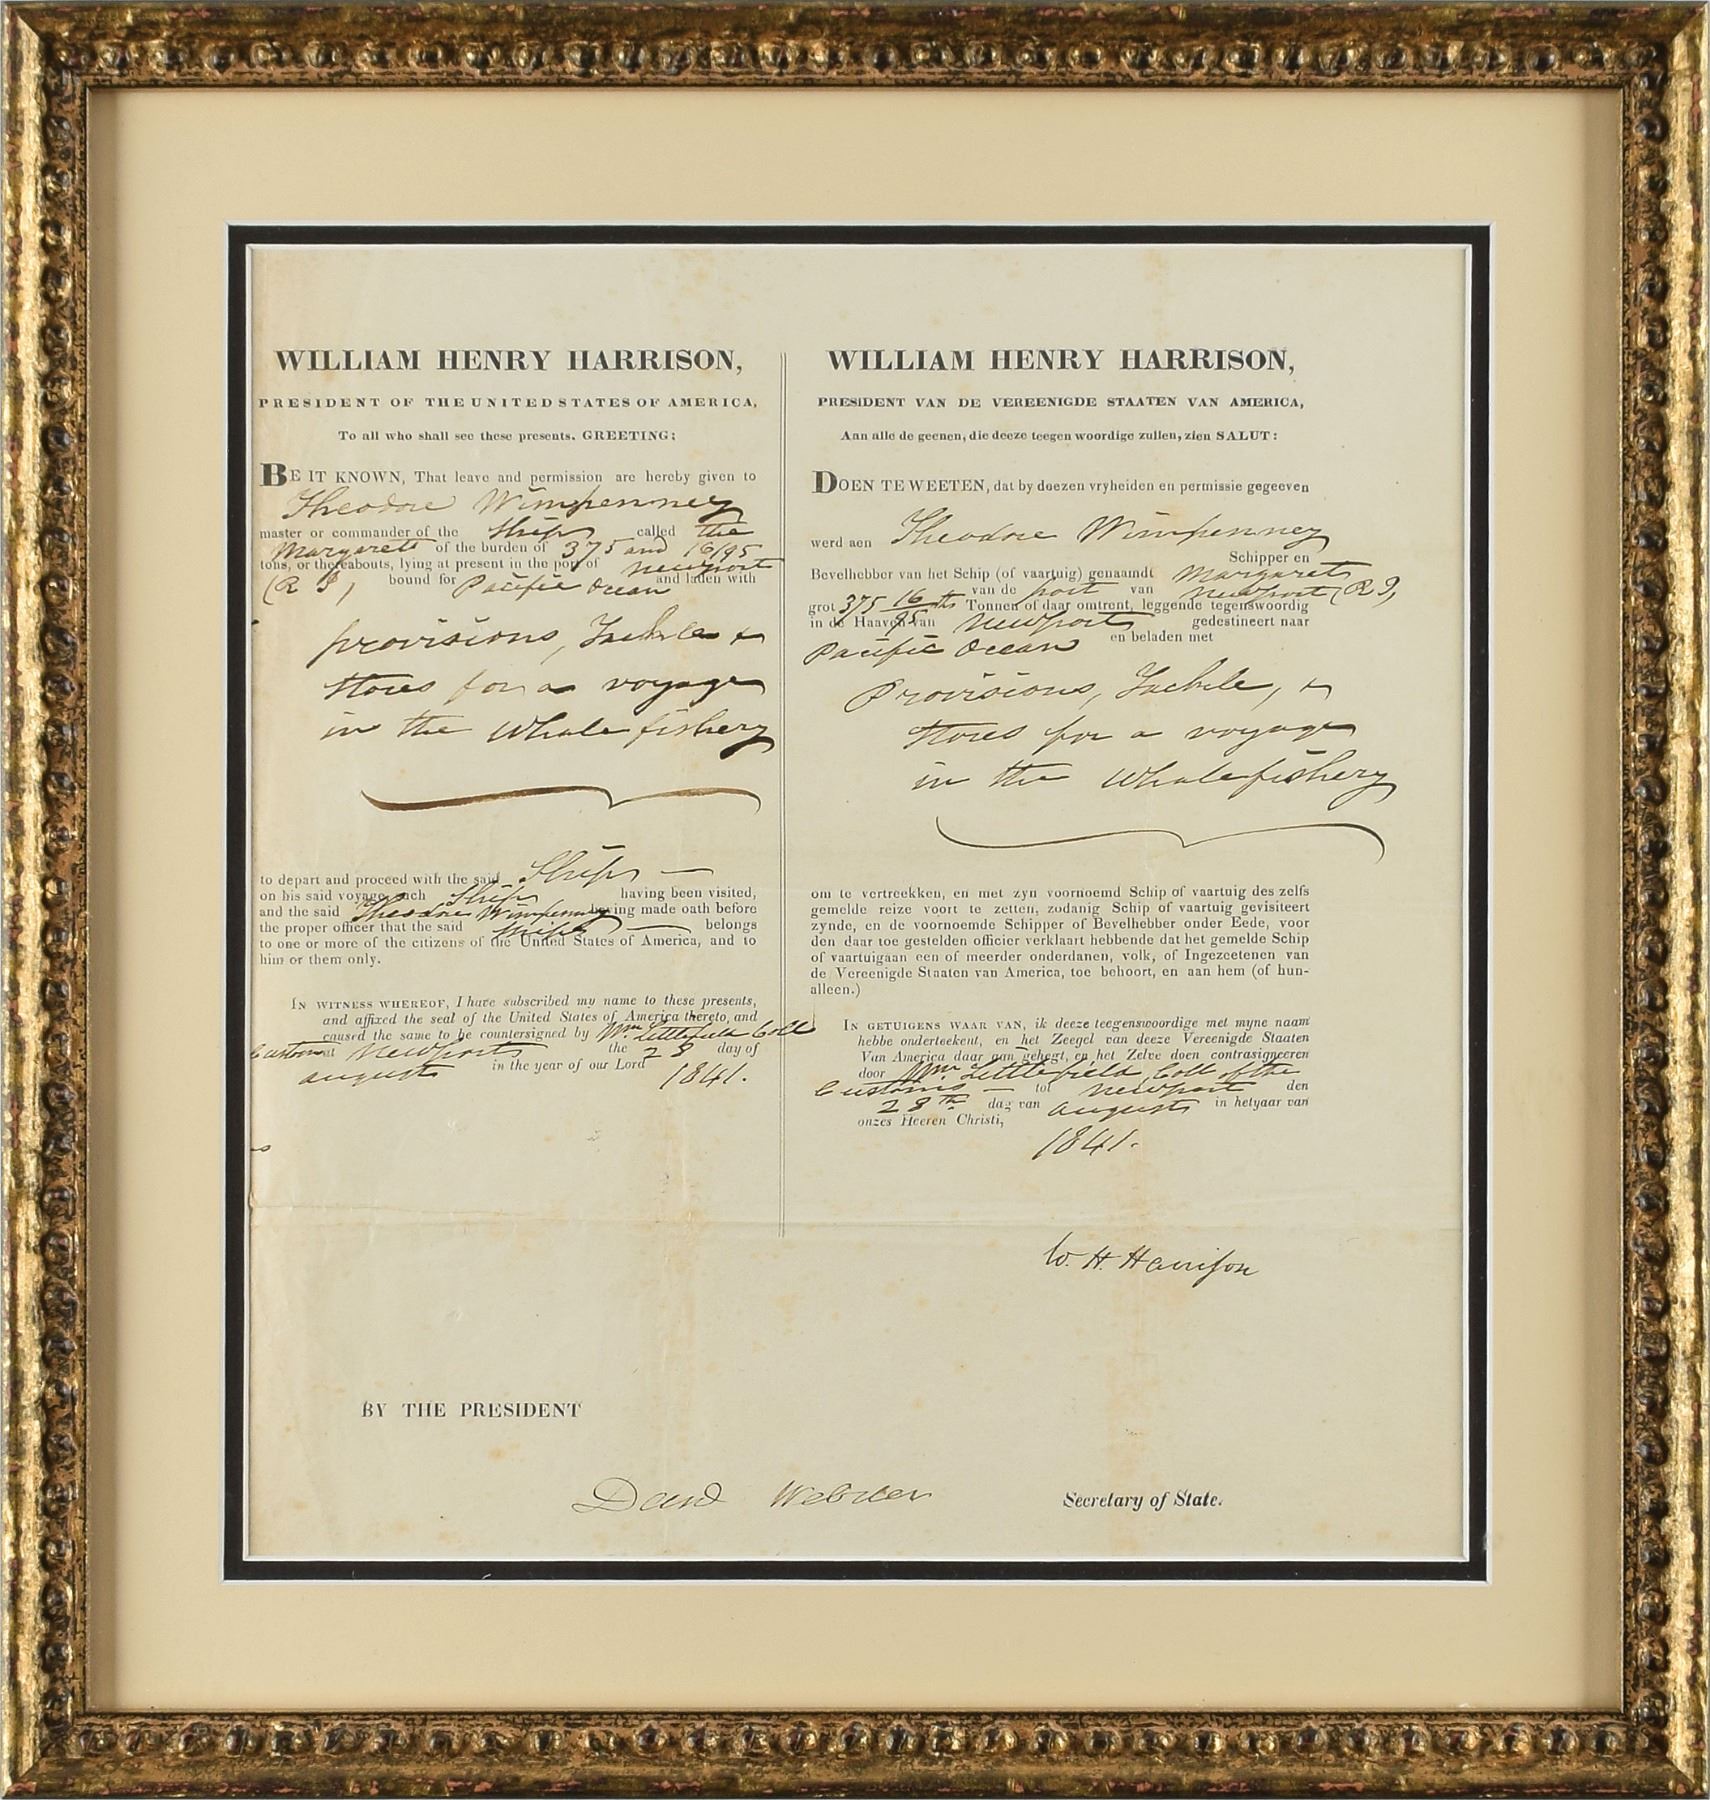 WILLIAM HENRY HARRISON,
PRESIDENT OF THE UNITED STATES OF AMERICA,
To all who shall see these presents, GREETING;
BE IT KNOWN, That leave and permission are hereby given to
Theodore Wimpenney
master or commander of the Ship called the
Margaret of the burden of 375 and 16/95
tons, or thereabouts, lying at present in the port of Newport
(R I) bound for Pacific Ocean and laden with
provisions, Tackle &
Stores for a voyage
in the Whale fishery
to depart and proceed with the said Ship
on his said voyage such Ship having been visited,
and the said Theodore Wimpenney having made oath before
the proper officer that the said Ship belongs
to one or more of the citizens of the United States of America, and to
him or them only.
IN WITNESS WHEREOF, I have subscribed my name to these presents,
and affixed the seal of the United States of America thereto, and
caused the same to be countersigned by Wm Littlefield Coll
Customs at Newport the 28 day of
August in the year of our Lord 1841.
WILLIAM HENRY HARRISON,
PRESIDENT VAN DE VEREENIGDE STAATEN VAN AMERICA,
Aan alle de geenen, die deeze teegen woordige zullen, zien SALUT:
DOEN TE WEETEN, dat by doezen vryheiden en permissie gegeeven
werd aen Theodore Wimpenney
Schipper en
Bevelhebber van het Schip (of vaartuig) genaamdt Margaret
van de port van Newport (R I)
grot 375 16/95ths Tonnen of daar omtrent, leggende tegenswoordig
in de Haaven van Newport gedestineert naar
Pacific Ocean en beladen met
Provisions, Tackle, &
Stores for a voyage
in the Whale fishery
om te vertreekken, en met zyn voornoemd Schip of vaartuig des zelfs
gemelde reize voort te zetten, zodanig Schip of vaartuig gevisiteert
zynde, en de voornoemde Schipper of Bevelhebber onder Eede, voor
den daar toe gestelden officier verklaart hebbende dat het gemelde Schip
of vaartuigaan een of meerder onderdanen, volk, of Ingezcetenen van
de Vereenigde Staaten van America, toe behoort, en aan hem (of hun-
alleen.)
IN GETUIGENS WAAR VAN, ik deeze teegenswoordige met myne naam
hebbe onderteekent, en het Zeegel van deeze Vereenigde Staaten
Van America daar aan gehegt, en het Zelve doen contrasigneeren
door Wm Littlefield Coll of the
Customs tot Newport den
28th dag van August in hetyaar van
onzes Heeren Christi,
1841.
W. H. Harrison
BY THE PRESIDENT
Danl Webster Secretary of State.